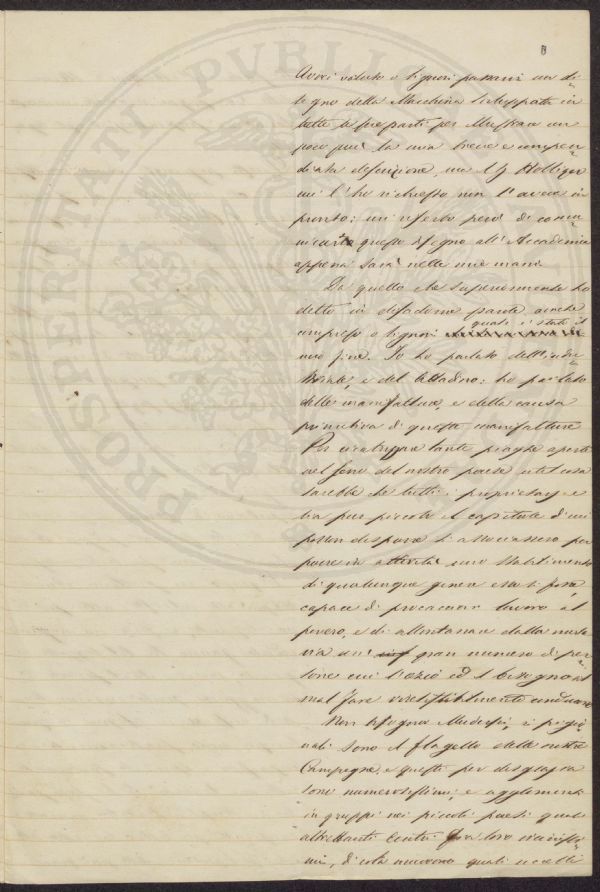 PROSPERITATI PVBLICAE
Avrei voluto o Signori passarvi un di-
segno della Macchina sviluppata in
tutte le sue parti per illustrare un
poco più la mia breve e compen-
diata descrizione, ma il
cui l'ho richiesto non l'aveva in
pronto: mi riserbo però di comu-
nicare questo disegno all'Accademia
appena sarà nelle mie mani.
Da quello che superiormente ho
detto in disadorne parole, avrete
compreso o Signori quale è stato il
mio fine. Io ho parlato dell'indu-
striale e del Cittadino: ho parlato
delle manifatture, e della causa
primitiva di queste manifatture
Per cicatrizzare tante piaghe aperte
nel seno del nostro paese util cosa
sarebbe che tutti i proprietarj e
sia pur piccolo il capitale di cui
posson disporre si associassero per
porre in attività uno Stabilimento
di qualunque genere esso si fosse
capace di procacciar lavoro al
povero, e di allontanare dalla mala
via un gran numero di per-
sone cui l'ozio ed il bisogno al
mal fare irresistibilmente conducono
Non bisogna illudersi, i pigio-
nali sono il flagello delle nostre
Campagne, e questi per disgrazia
sono numerosissimi, e agglomerati
in gruppi nei piccoli paesi quali
altrettanti Centri fra loro vicinissi-
mi, di colà muovono quali uccelli